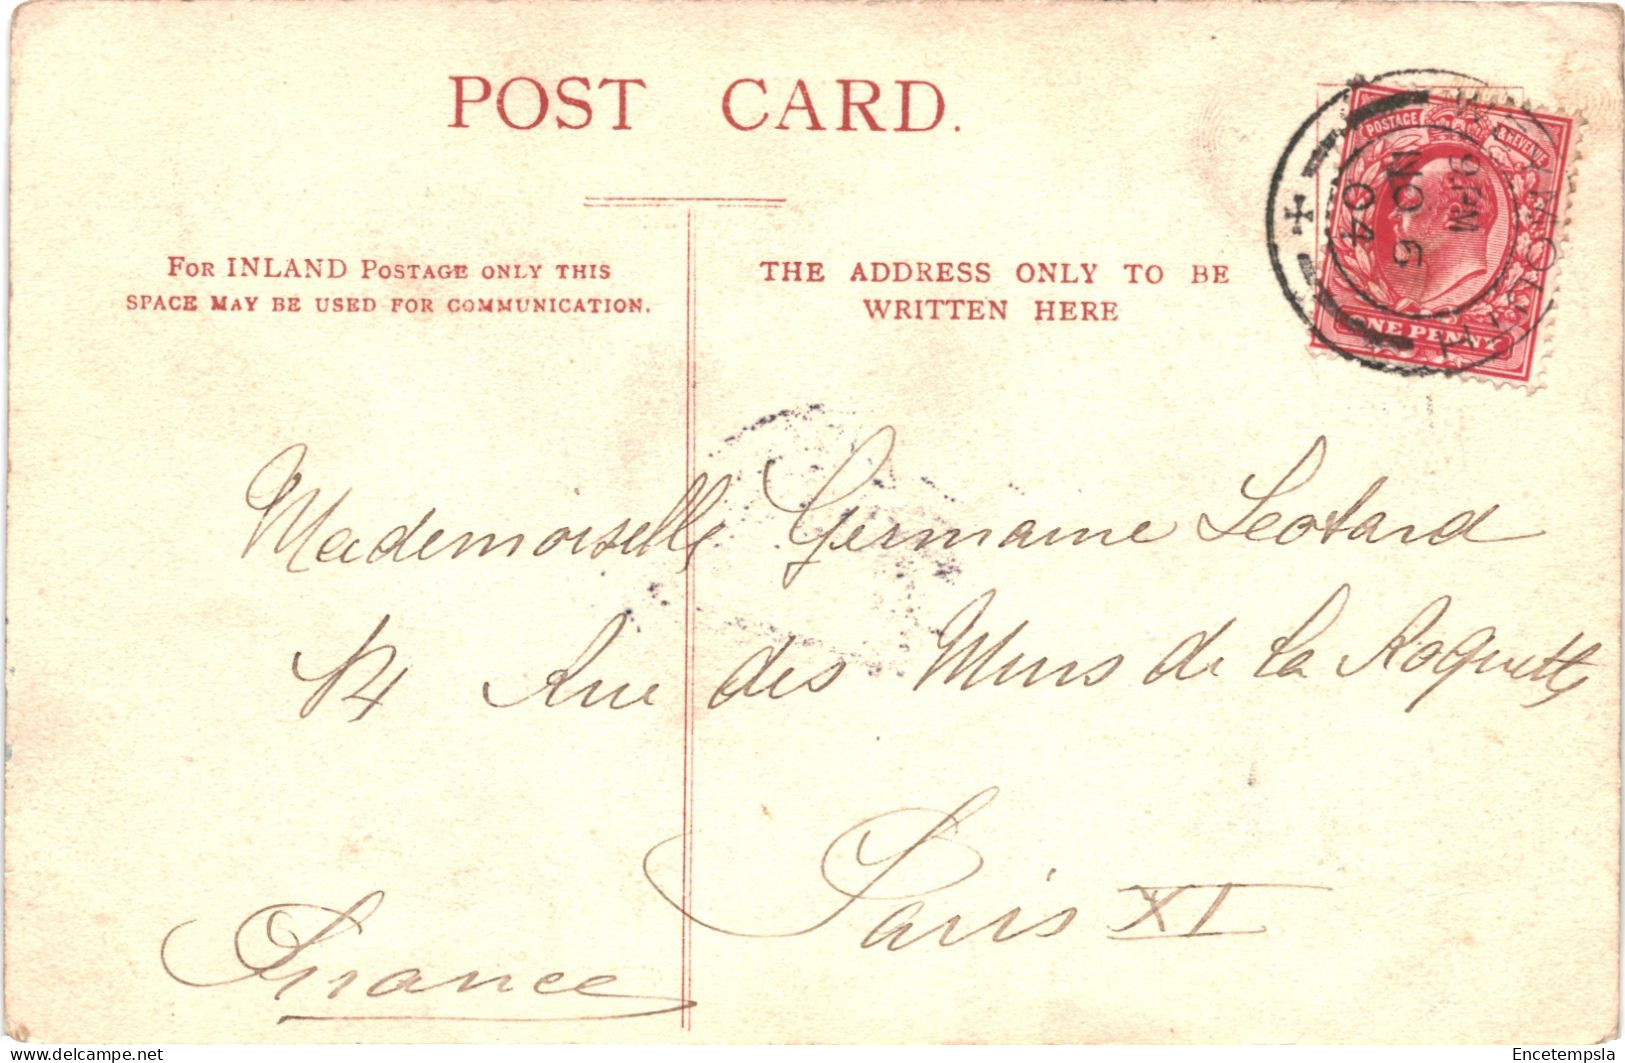 POST CARD.
FOR INLAND POSTAGE ONLY THIS
SPACE MAY BE USED FOR COMMUNICATION.
THE ADDRESS ONLY TO BE
WRITTEN HERE
POSTAGE & REVENUE
ONE PENNY
9 PM
NO 5
04
Mademoiselle Germaine Leotard
14 Rue des Murs de la Roquette
Paris XI
France
Encetempsla